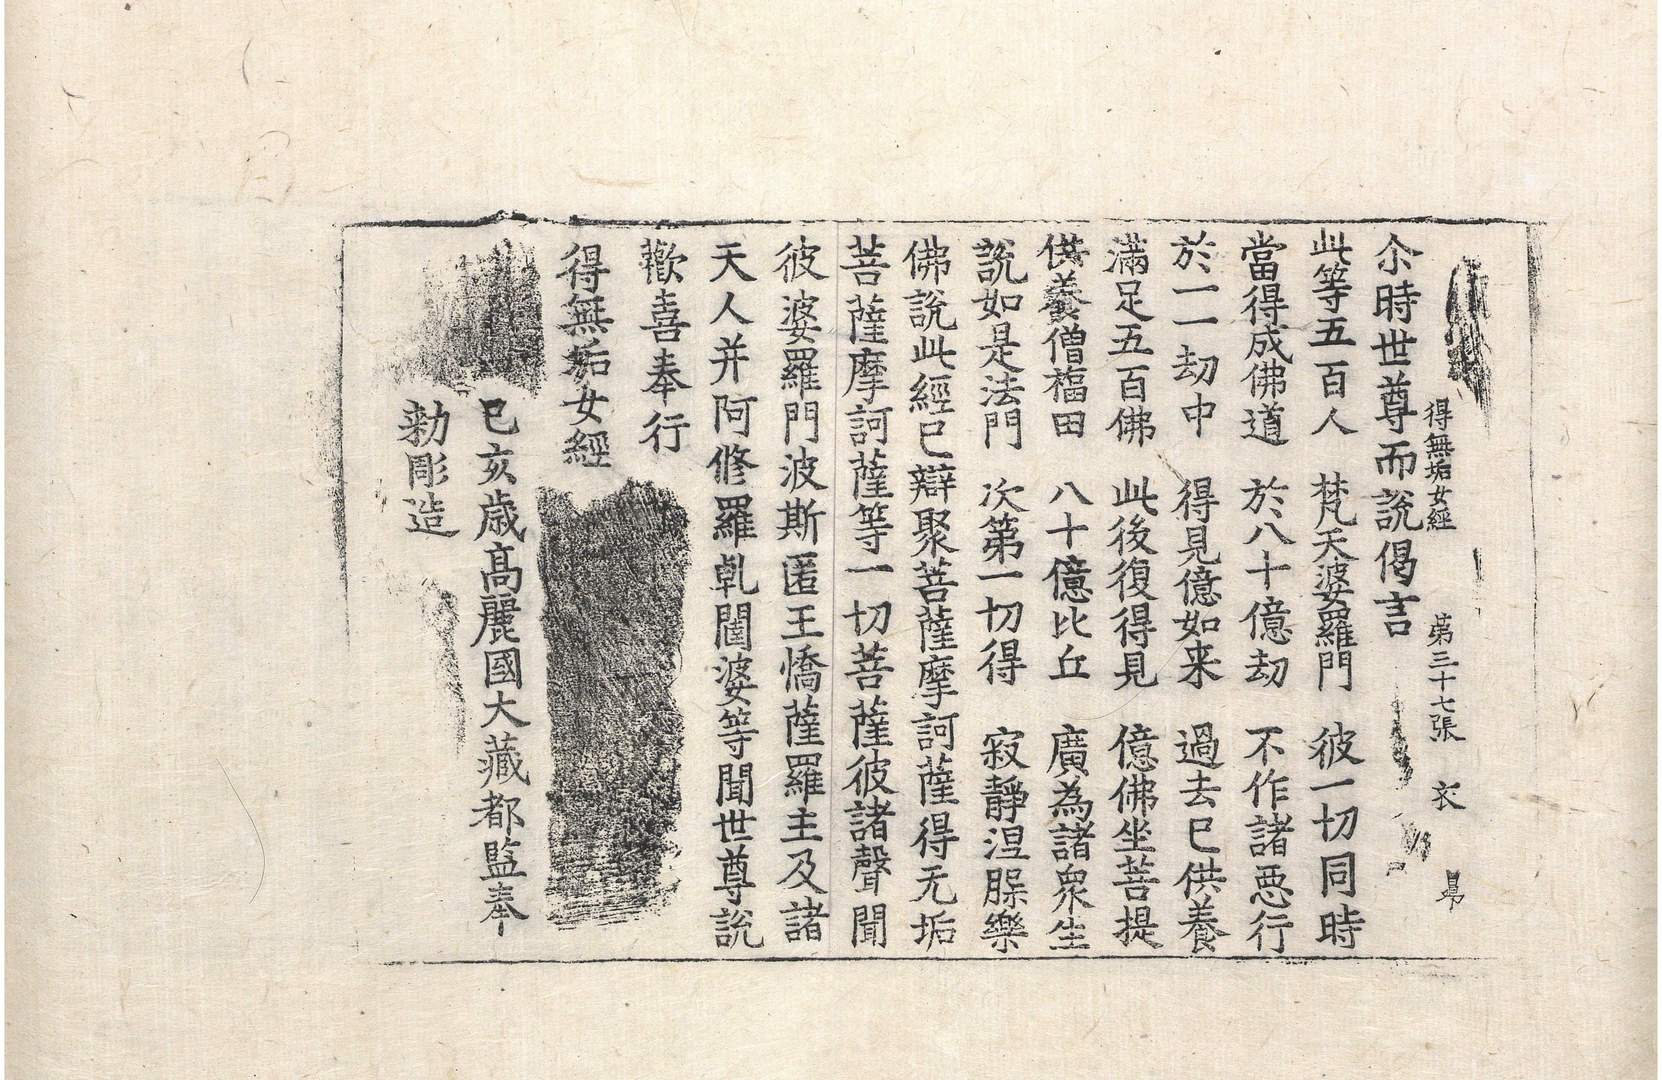 得無垢女經 第三十七張 衣 昻
尒時世尊而說偈言
此等五百人 梵天婆羅門 彼一切同時
當得成佛道 於八十億劫 不作諸惡行
於一一劫中 得見億如来 過去已供養
滿足五百佛 此後復得見 億佛坐菩提
供養僧福田 八十億比丘 廣為諸衆生
說如是法門 次第一切得 寂靜涅槃樂
佛說此經已辯聚菩薩摩訶薩得无垢
菩薩摩訶薩等一切菩薩彼諸聲聞
彼婆羅門波斯匿王憍薩羅主及諸
天人并阿修羅乹闥婆等聞世尊說
歡喜奉行
得無垢女經
己亥歲高麗國大藏都監奉
勑彫造